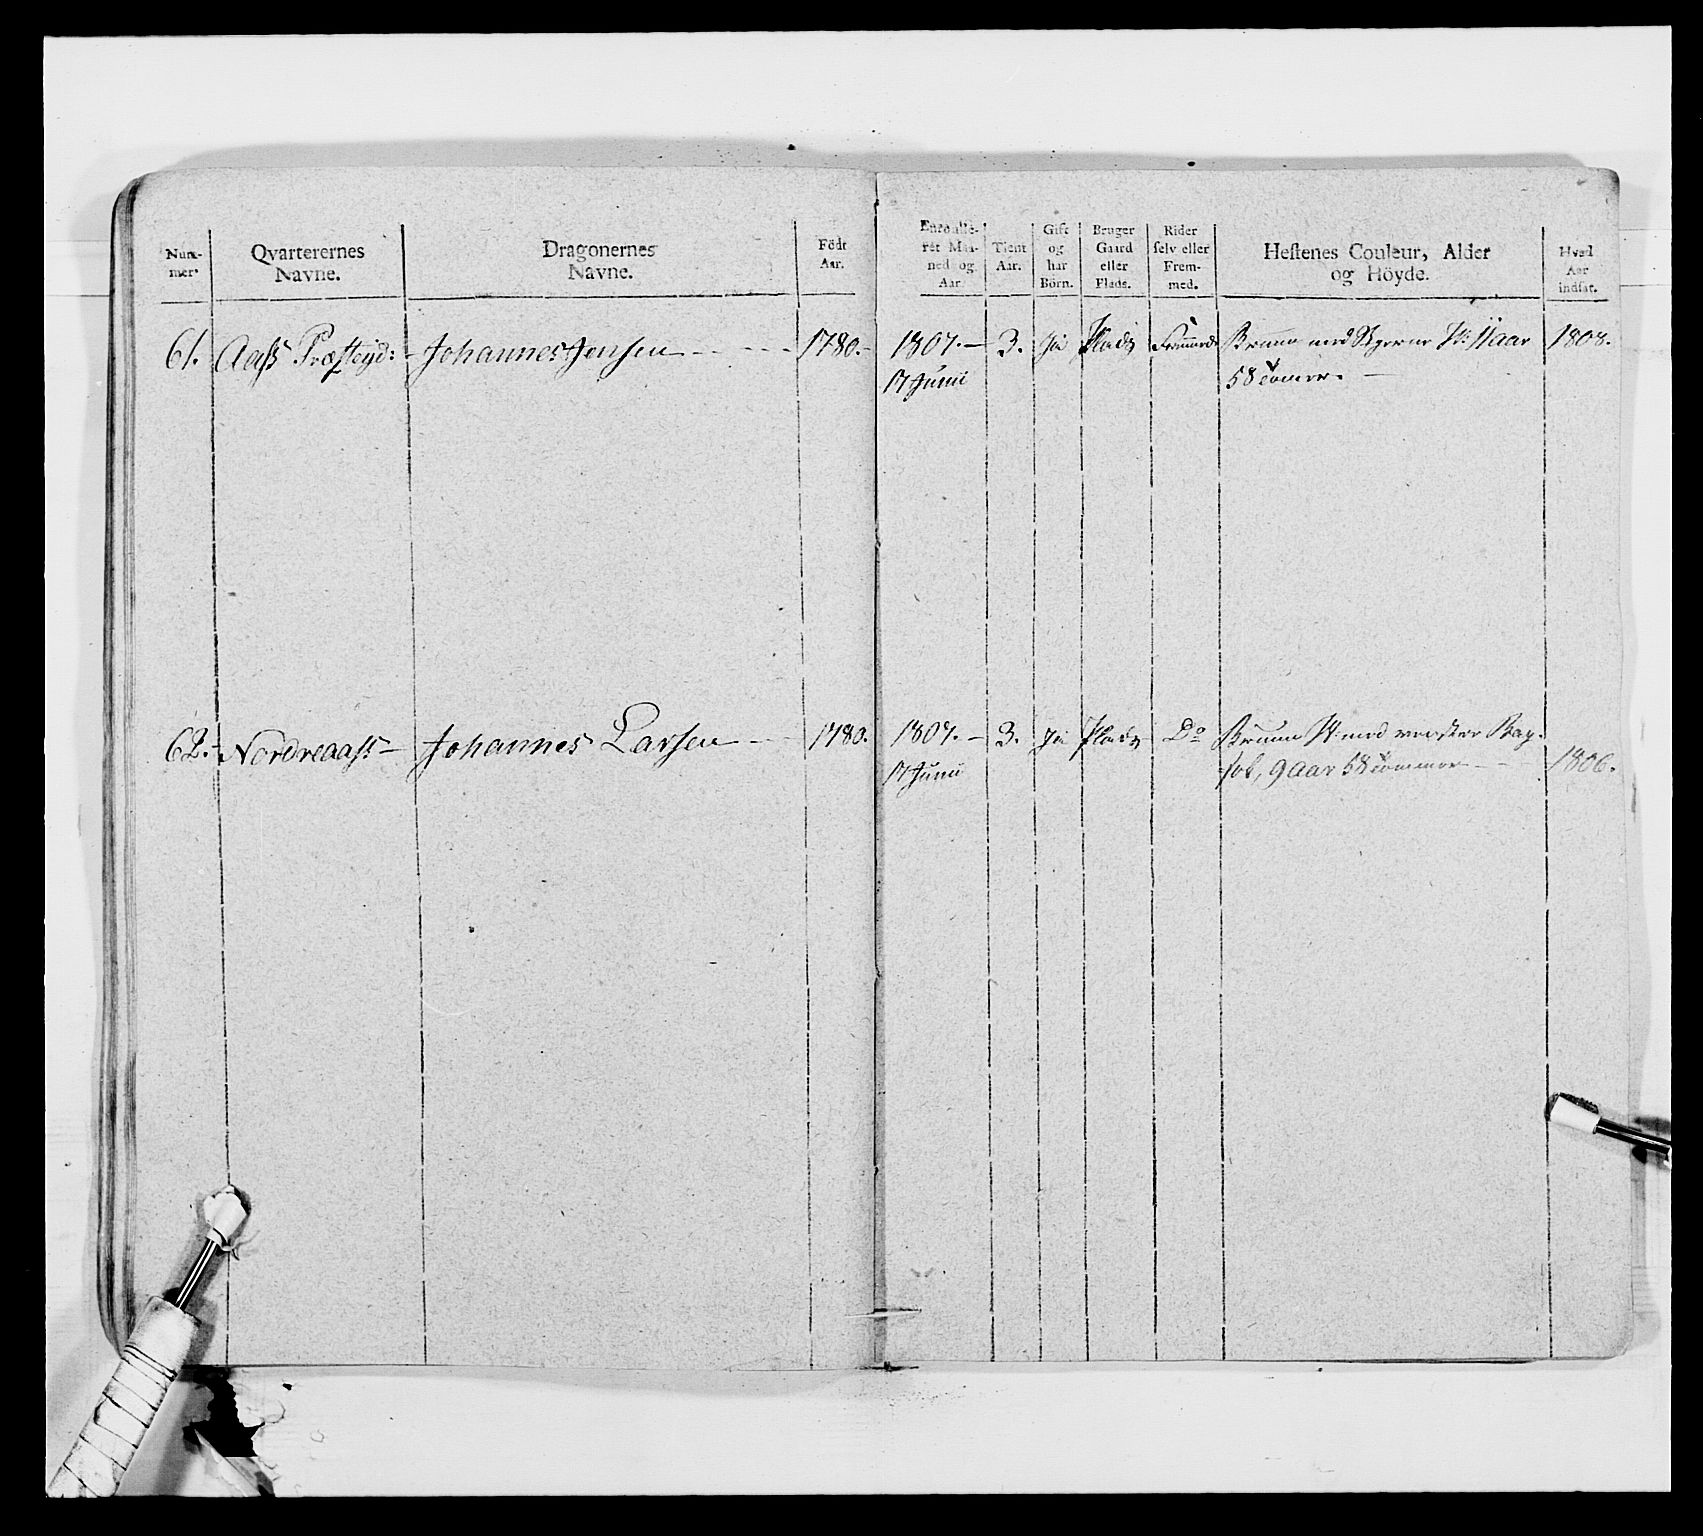 Num-
mer.
Qvarterernes
Navne.
Dragonernes
Navne.
Födt
Aar.
Enroulle-
ret Maa-
ned og
Aar.
Tient
Aar.
Gift
og
har
Börn.
Bruger
Gaard
eller
Plads.
Rider
selv eller
Frem-
med.
Hestenes Couleur, Alder
og Höyde.
Hvad
Aar
indsat.
61. Aass Præsteyd: Johannes Jensen 1780. 1807. 3. Ja Plads Fremmed Bruun med Stjerne 11 aar 1808.
17 Junii 58 tommer.
62. Nordreaass Johannes Larsen 1780. 1807. 3. Ja Plads Do Bruun H: med venstre Bag-
17 Junii fod, 9 aar 58 tommer 1806.